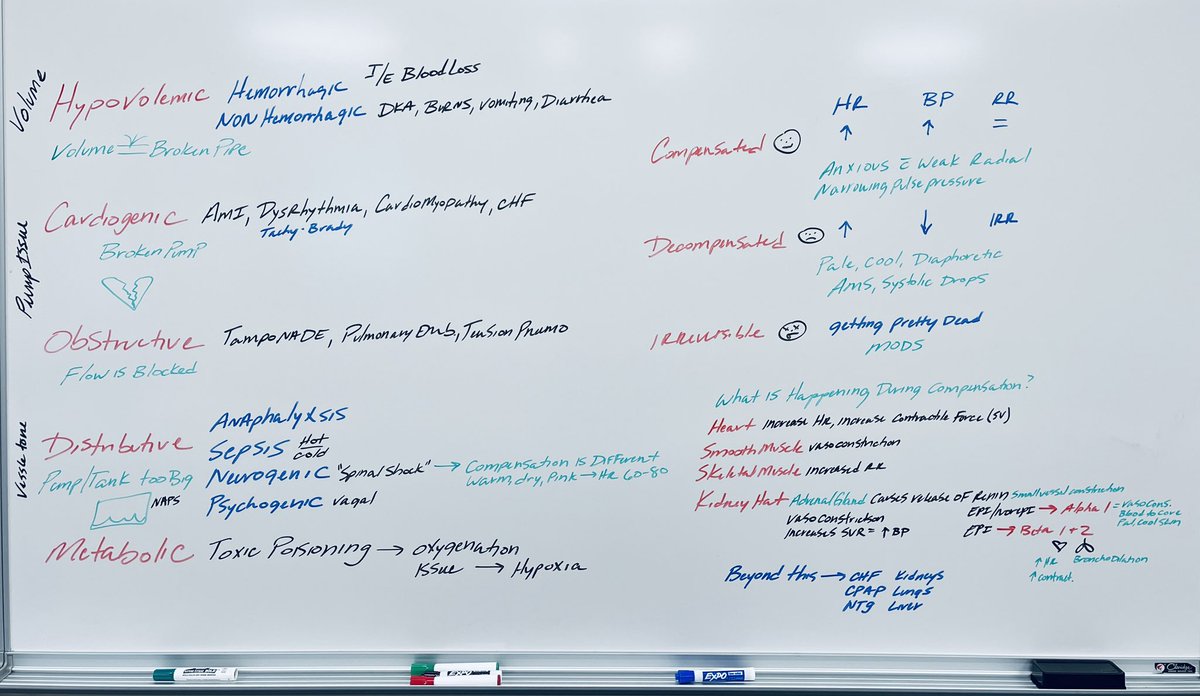 Volume
Hypovolemic Hemorrhagic I/E Blood Loss
NON Hemorrhagic DKA, Burns, Vomiting, Diarrhea
Volume Broken Pipe
Pump Issue
Cardiogenic AMI, Dysrhythmia, Cardiomyopathy, CHF
Tachy-Brady
Broken Pump
Obstructive Tamponade, Pulmonary Emb, Tension Pneumo
Flow is Blocked
Vessle tone
Distributive
Anaphalyxsis
Sepsis Hot
Cold
Pump/Tank too Big
Neurogenic "Spinal Shock" → Compensation is Different
Warm, dry, Pink → HR 60-80
NAPS
Psychogenic Vagal
Metabolic Toxic Poisoning → Oxygenation
Issue → Hypoxia
HR BP RR
Compensated ↑ ↑ =
Anxious c Weak Radial
Narrowing pulse pressure
Decompensated ↑ ↓ IRR
Pale, Cool, Diaphoretic
AMS, Systolic Drops
Irreversible getting Pretty Dead
MODS
What is Happening During Compensation?
Heart increase HR, increase contractile Force (SV)
Smooth Muscle vasoconstriction
Skeletal Muscle increased RR
Kidney Hat Adrenal Gland Causes release of Renin Small vessel constriction
Vasoconstriction
Increases SVR = ↑ BP
EPI/NorEPI → Alpha 1 = Vasocons.
Blood to Core
Pal, Cool Skin
EPI → Beta 1 + 2
↑ HR
↑ contract.
Bronchodilation
Beyond this → CHF Kidneys
CPAP Lungs
NTG Liver
EXPO
EXPO